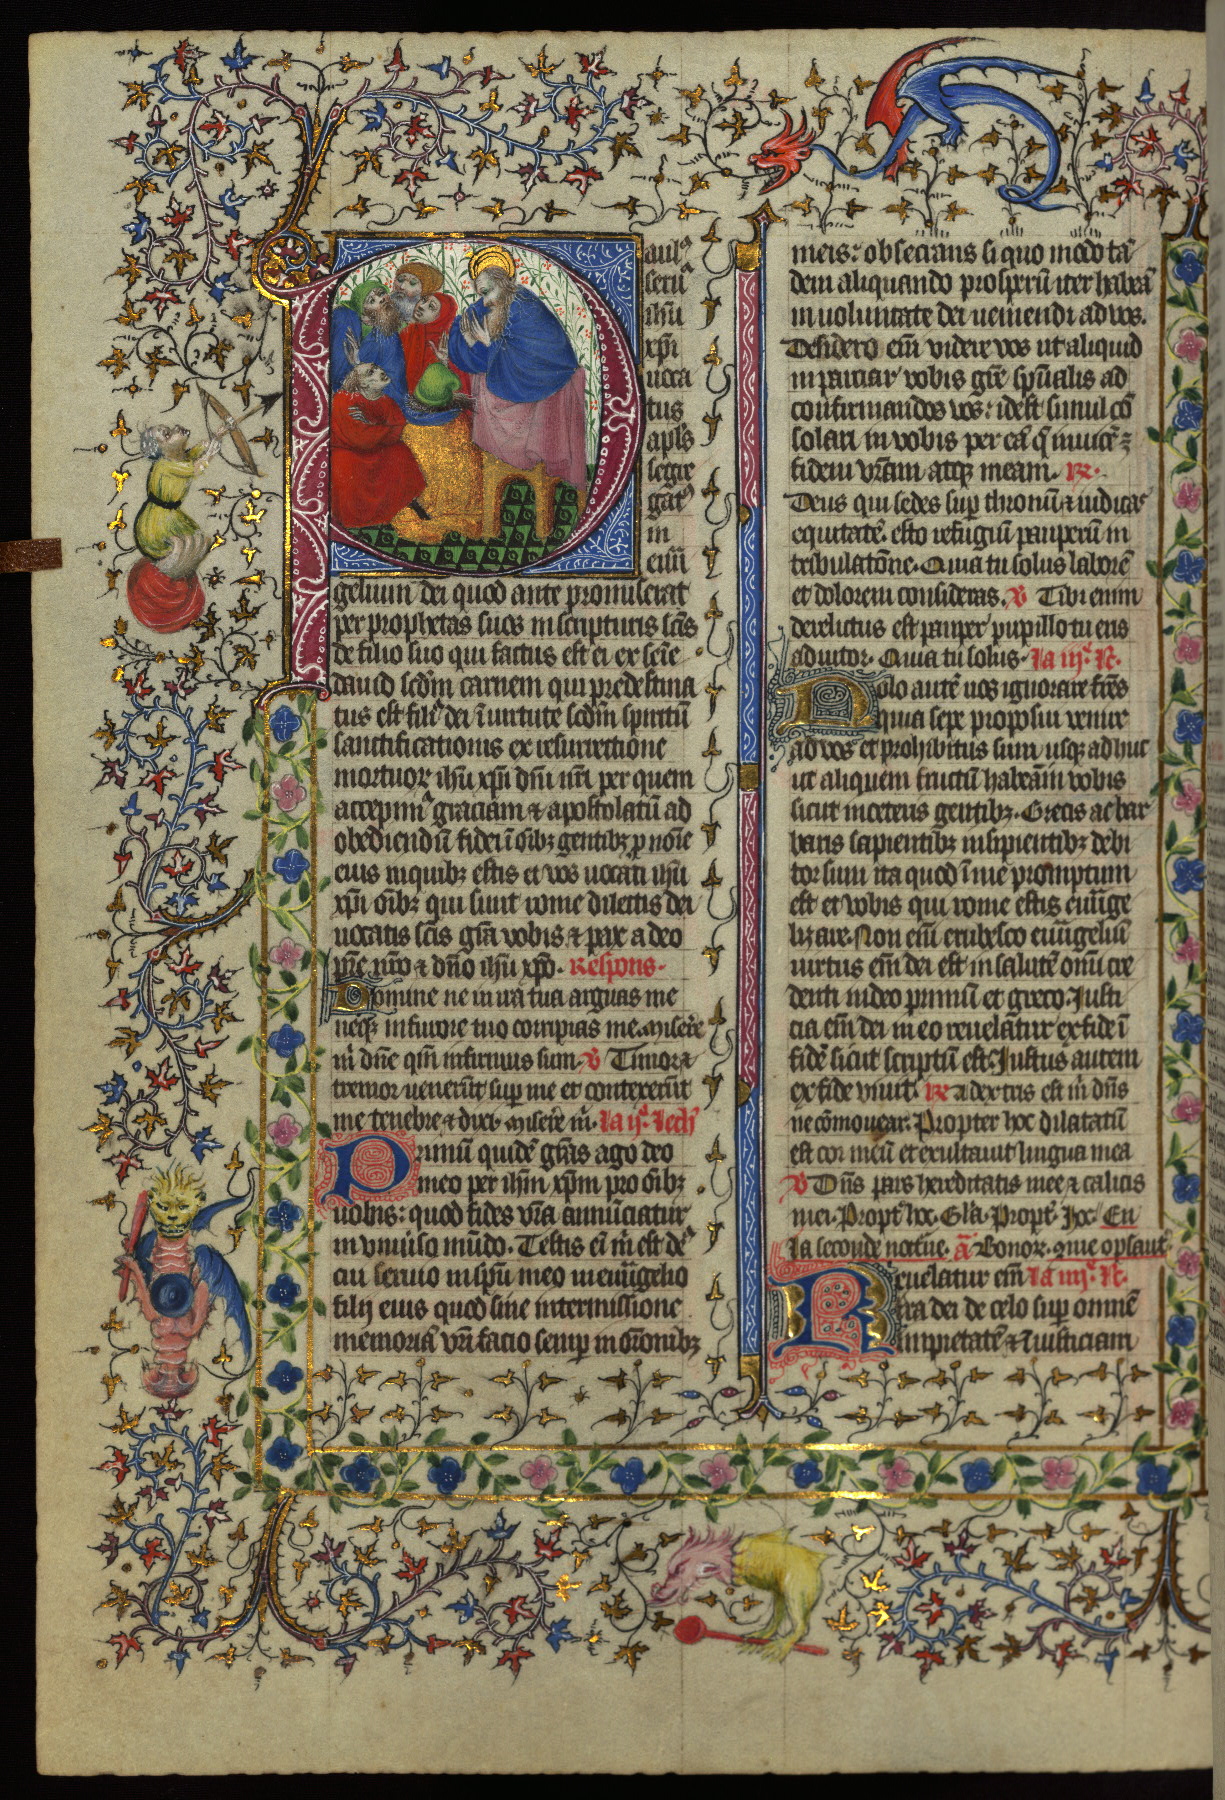 Paulꝰ
seruꝰ
ihũ
xpĩ
uoca
tus
apłs
segre
gatꝰ
in
euã
gelium dei quod ante promiserat
per prophetas suos in scripturis scĩs
de filio suo qui factus est ei ex semĩe
dauid scđm carnem qui predestina
tus est filiꝰ dei ĩ uirtute scđm spiritũ
sanctificationis ex resurrectione
mortuoꝝ ihũ xpĩ dñi nr̃i per quem
accepimꝰ graciam ⁊ apostolatũ ad
obediendũ fidei ĩ õibꝫ gentibꝫ p̱ noĩe
eius in quibꝫ estis et vos uocati ihũ
xpĩ õibꝫ qui sunt rome dilectis dei
uocatis scĩs grã vobis ⁊ pax a deo
pr̃e nr̃o ⁊ dño ihũ xp̃o. Respons.
Domine ne in ira tua arguas me
neqꝫ in furore tuo corripias me. miserẽ
m̃ dñe qm̃ infirmus sum. ℣ Timor ⁊
tremor uenerũt sup̱ me et contexerũt
me tenebre ⁊ dixi. miserẽ m̃. La ijᵉ. lecħ
Primũ quidẽ gr̃as ago deo
meo per ihm̃ xpm̃ pro õibꝫ
uobis: quod fides vr̃a annũciatur
in vniũso mũdo. Testis eĩ m̃ est deꝰ
cui seruio in sp̃u meo in euãgelio
filij eius quod sine intermissione
memoriã vr̃i facio semp̱ in or̃onibꝫ
meis: obsecrans si quo modo tã
dem aliquando prosperũ iter habeã
in uoluntate dei ueniendi ad vos.
Desidero eĩ videre vos ut aliquid
inpartiar vobis gr̃e sp̃ualis ad
confirmandos vos: id est simul cõ
solari in vobis per eã q̃ inuicẽ ÷
fidem vr̃am atqꝫ meam. ℟.
Deus qui sedes sup̱ thronũ ⁊ iudicas
equitatẽ. esto refugiũ pauperũ in
tribulatõne. Quia tu solus laborẽ
et dolorem consideras. ℣ Tibi enim
derelictus est pauper pupillo tu eris
adiutor. Quia tu solus. La iijᵉ. lc̃.
Nolo autẽ uos ignorare fr̃es
quia sepe proposui venire
ad vos et prohibitus sum usqꝫ adhuc
ut aliquem fructũ habeãm vobis
sicut in ceteris gentibꝫ. Grecis ac bar
baris sapientibꝫ insipientibꝫ debi
tor sum ita quod ĩ me promptum
est et vobis qui rome estis euãge
lizare. Non eĩ erubesco euãgeliũ
uirtus eĩ dei est in salutẽ omĩ cre
denti iudeo primũ et greco. Iusti
cia eĩ dei in eo reuelatur ex fide ĩ
fidẽ sicut scriptũ est. Iustus autem
ex fide viuit. ℟ A dextris est m̃ dñs
ne cõmouear. Propter hoc dilatatũ
est cor meũ et exultauit lingua mea
℣ Dñs pars hereditatis mee ⁊ calicis
mei. Propt̾ hoc. Gl̃a. Propt̾. hoc. En
la seconde nocťne. ã. Bonoꝝ. mie op̃sautꝰ
Reuelatur eĩ La iiijᵉ. lc̃.
ira dei de celo sup̱ omnẽ
impietatẽ ⁊ ĩiusticiam